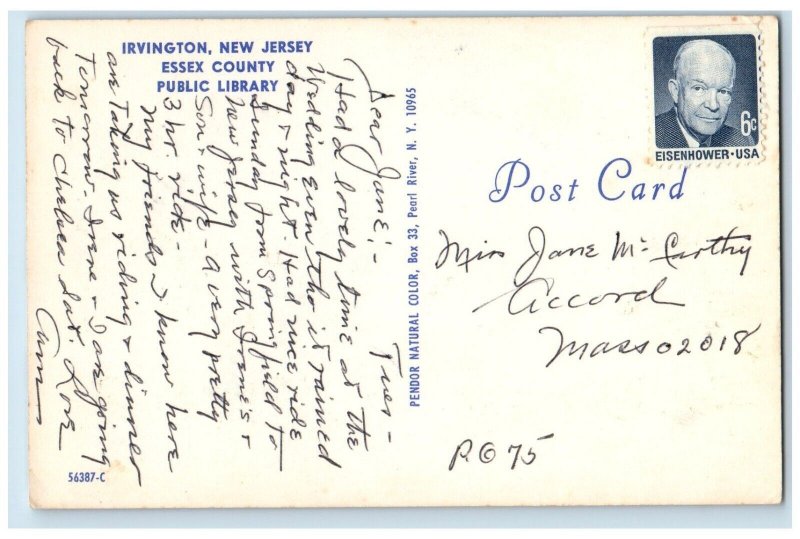 IRVINGTON, NEW JERSEY
ESSEX COUNTY
PUBLIC LIBRARY
Tues-
Dear Jane:-
Had a lovely time at the
Wedding even tho it rained
day & night. Had nice ride
Sunday from Springfield to
New Jersey with Irene's
Son & wife - a very pretty
3 hr. ride -
My friends I know here
are taking us riding & dinner
tomorrow. Irene & I are going
back to Chelsea Sat. Love
56387-C
PENDOR NATURAL COLOR, Box 33, Pearl River, N. Y. 10965
6c
EISENHOWER·USA
Post Card
Miss Jane McCarthy
Accord
Mass 02018
P.O 75